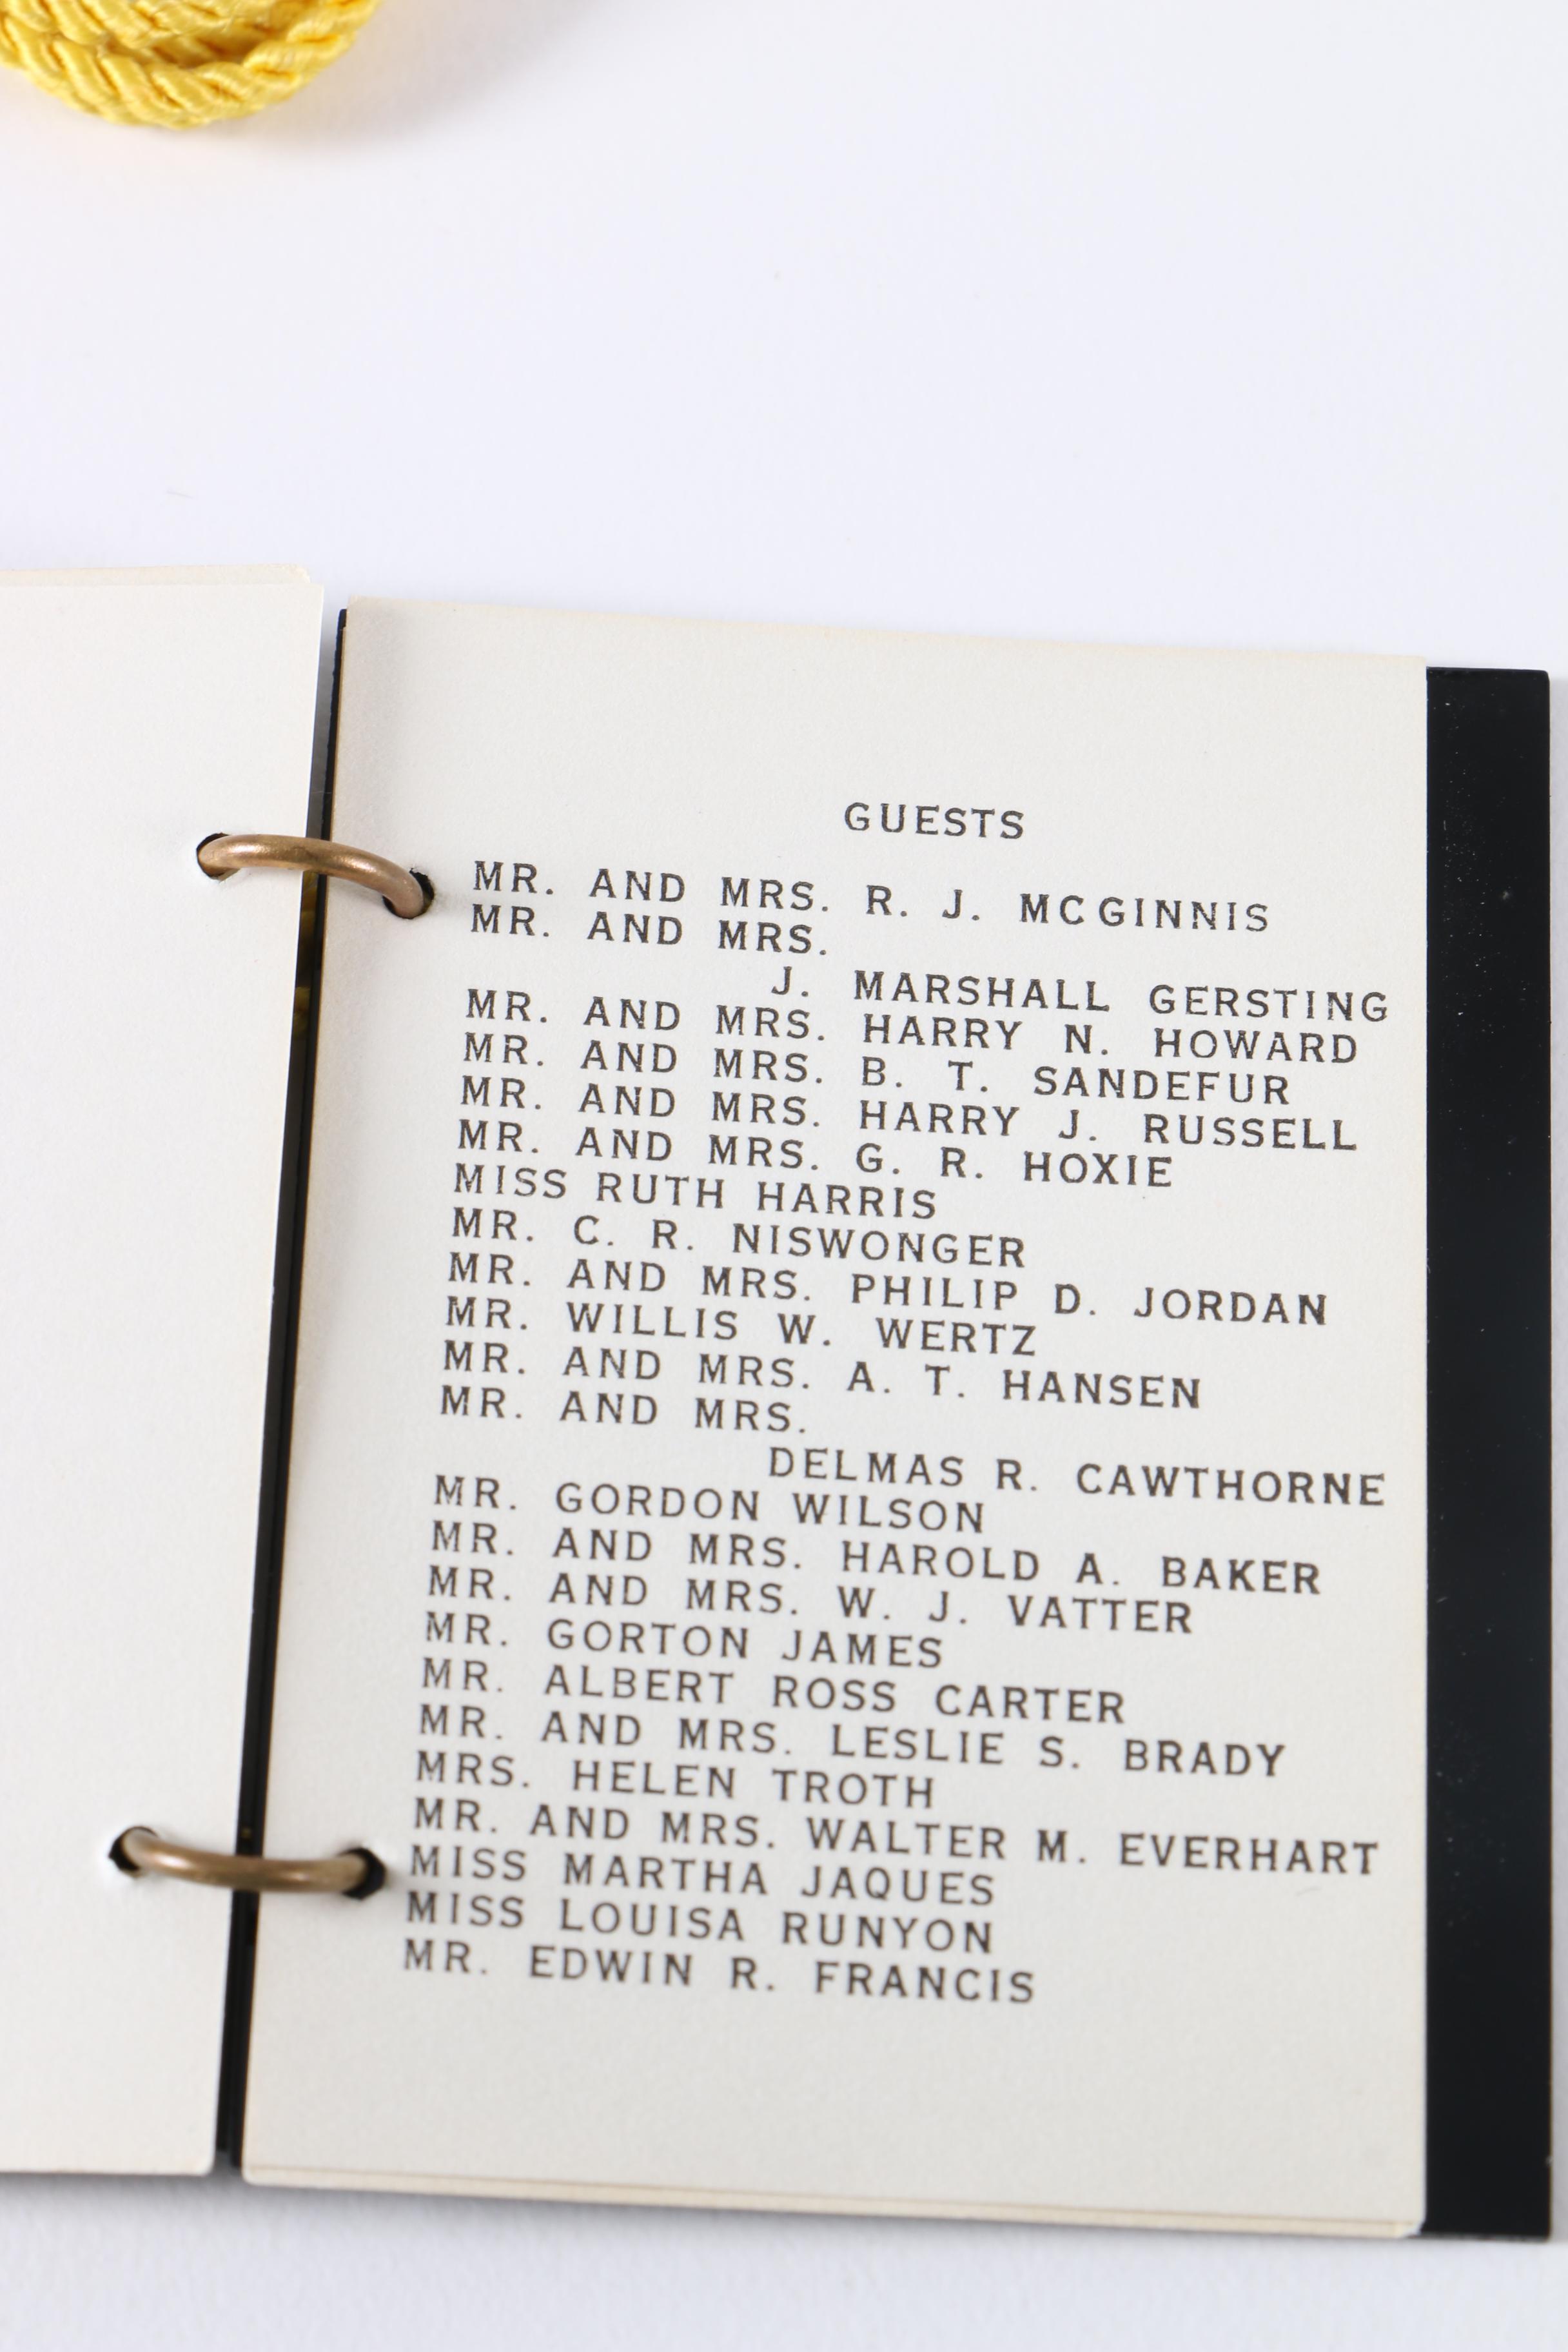 GUESTS
MR. AND MRS. R. J. MCGINNIS
MR. AND MRS.
J. MARSHALL GERSTING
MR. AND MRS. HARRY N. HOWARD
MR. AND MRS. B. T. SANDEFUR
MR. AND MRS. HARRY J. RUSSELL
MR. AND MRS. G. R. HOXIE
MISS RUTH HARRIS
MR. C. R. NISWONGER
MR. AND MRS. PHILIP D. JORDAN
MR. WILLIS W. WERTZ
MR. AND MRS. A. T. HANSEN
MR. AND MRS.
DELMAS R. CAWTHORNE
MR. GORDON WILSON
MR. AND MRS. HAROLD A. BAKER
MR. AND MRS. W. J. VATTER
MR. GORTON JAMES
MR. ALBERT ROSS CARTER
MR. AND MRS. LESLIE S. BRADY
MRS. HELEN TROTH
MR. AND MRS. WALTER M. EVERHART
MISS MARTHA JAQUES
MISS LOUISA RUNYON
MR. EDWIN R. FRANCIS